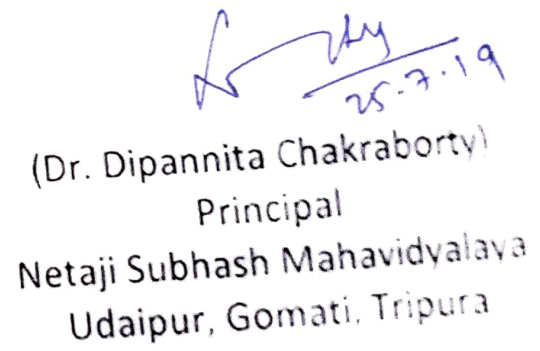 25.7.19
(Dr. Dipannita Chakraborty)
Principal
Netaji Subhash Mahavidyalaya
Udaipur, Gomati, Tripura